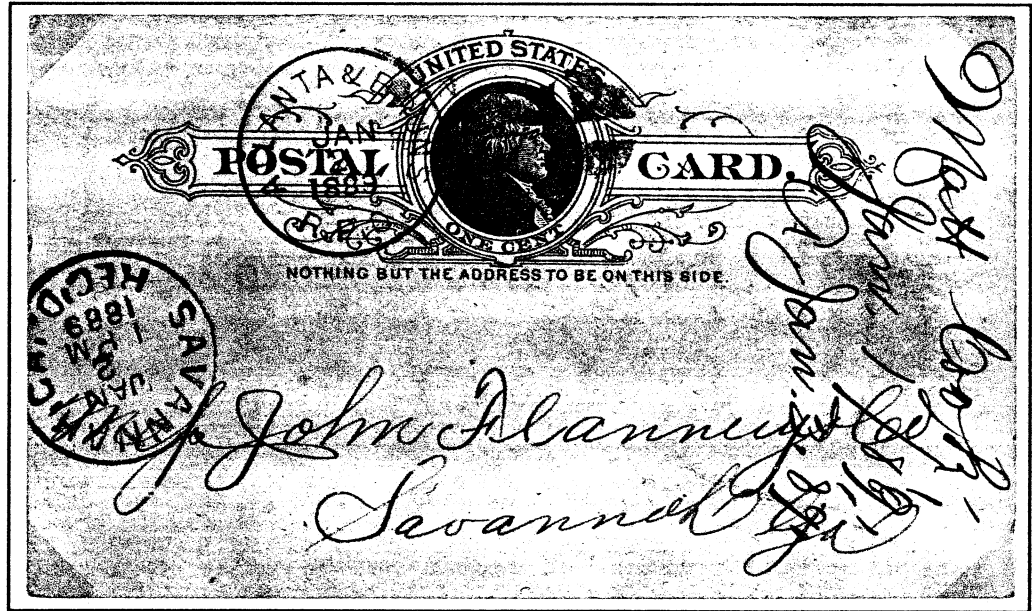 UNITED STATES
POSTAL CARD.
ONE CENT
NOTHING BUT THE ADDRESS TO BE ON THIS SIDE.
ANTA &
JAN
2
1889
R.P.O.
SAVANNAH
JAN
2
1 PM
1889
REC'D
John Flannery & Co
Savannah Ga
Matt
Jan 1
Jan.